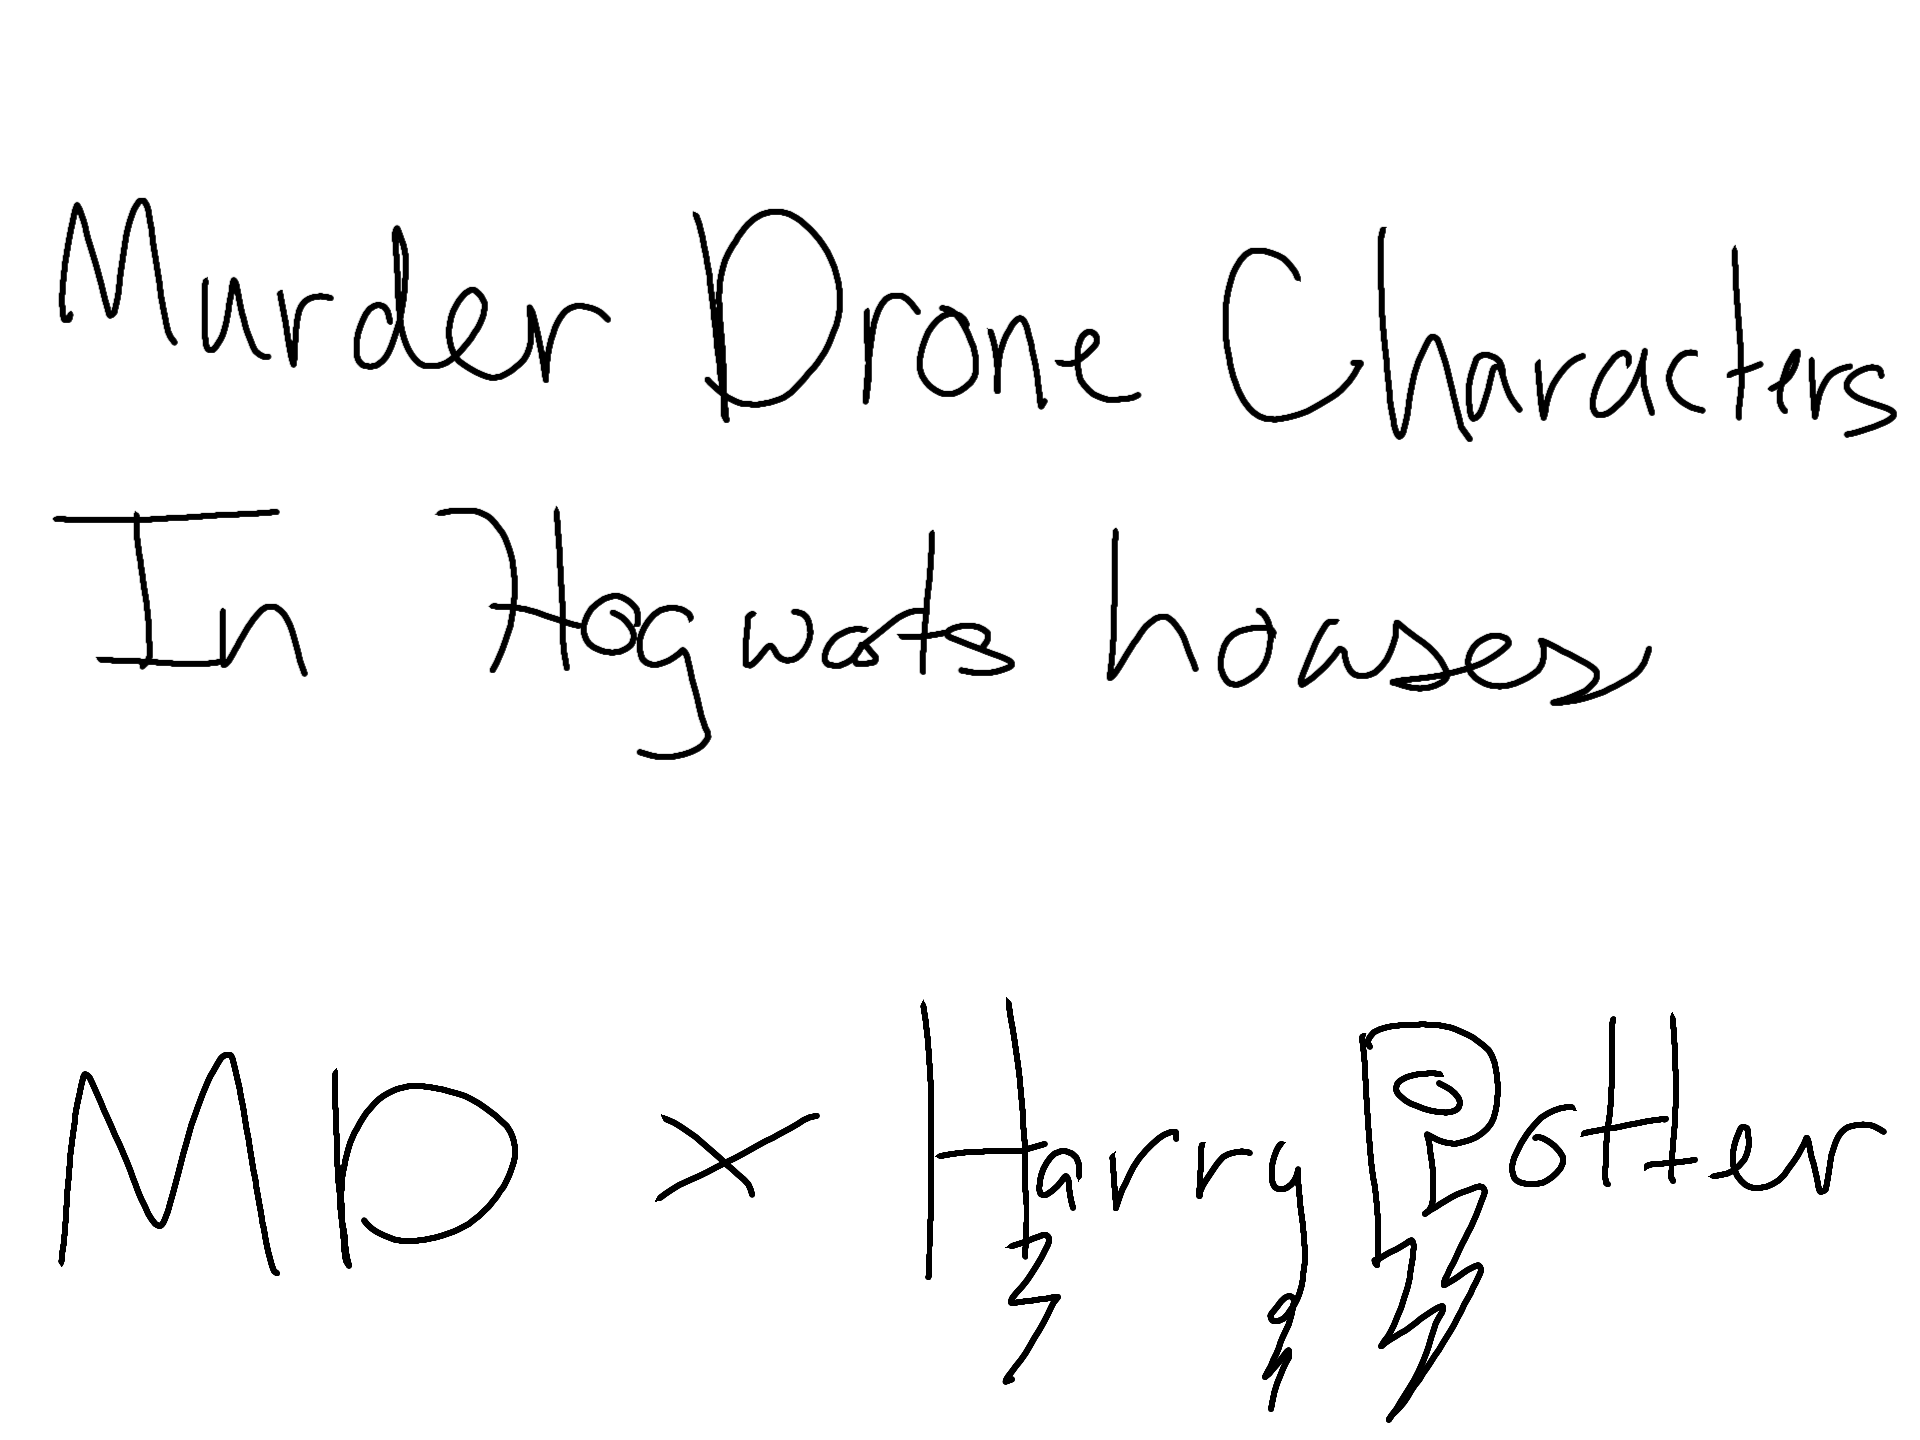 Murder Drone Characters
In Hogwarts houses
MD x Harry Potter